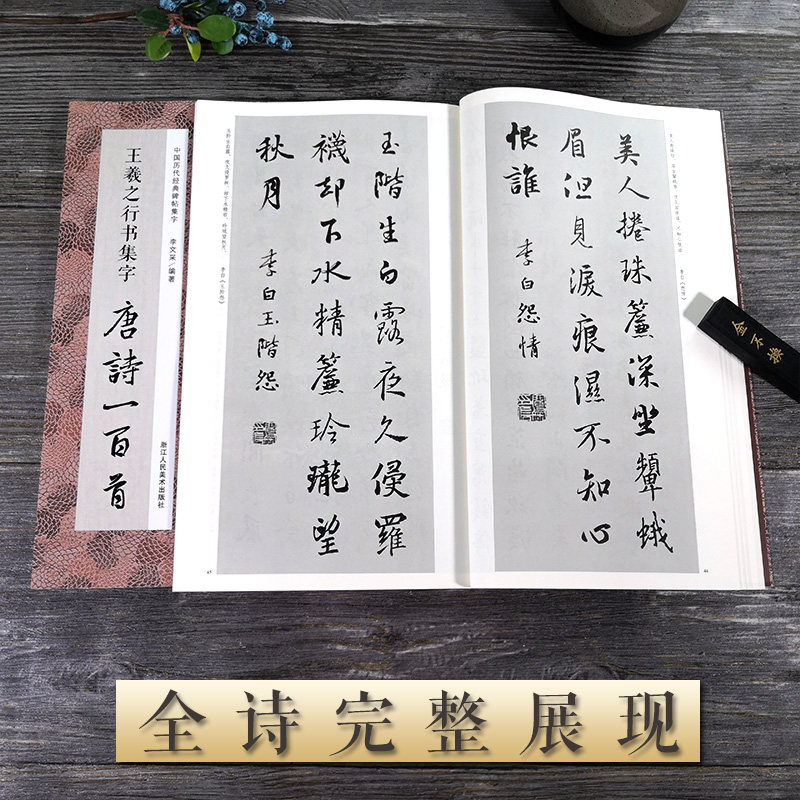 中国历代经典碑帖集字
李文采/编著
王羲之行书集字
唐詩一百首
浙江人民美术出版社
美人捲珠簾深坐顰蛾
眉但見淚痕濕不知心
恨誰
李白怨情
44
玉階生白露夜久侵羅
襪却下水精簾玲瓏望
秋月
李白玉階怨
45
金不換
全诗完整展现